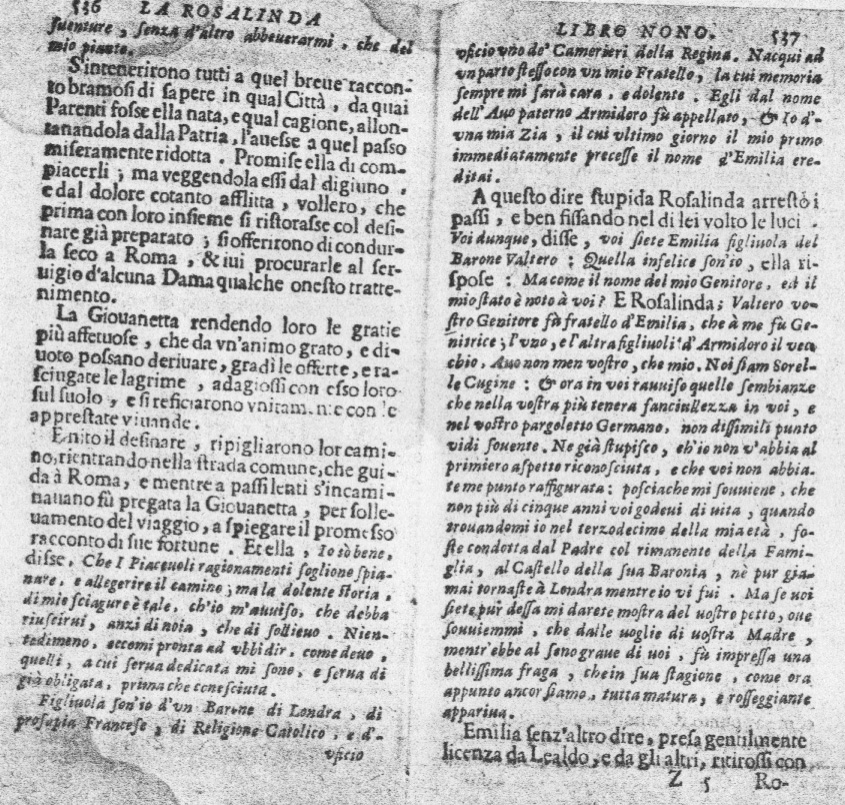 536 LA ROSALINDA
suenture, senza d'altro abbeuerarmi, che del
mio pianto.
S'intenerirono tutti a quel breue raccon-
to bramosi di sapere in qual Città, da quai
Parenti fosse ella nata, e qual cagione, allon-
tanandola dalla Patria, l'auesse a quel passo
miseramente ridotta. Promise ella di com-
piacerli; ma veggendola essi dal digiuno,
e dal dolore cotanto afflitta, vollero, che
prima con loro insieme si ristorasse col desi-
nare già preparato; si offerirono di condur-
la seco a Roma, & iui procurarle al ser-
uigio d'alcuna Dama qualche onesto tratte-
nimento.
La Giouanetta rendendo loro le gratie
più affetuose, che da vn'animo grato, e di-
uoto possano deriuare, gradì le offerte, e ra-
sciugate le lagrime, adagiossi con esso loro
sul suolo, e si reficiarono vnitamente con le
apprestate viuande.
Finito il desinare, ripigliarono lor cami-
no, rientrando nella strada comune, che gui-
da à Roma, e mentre a passi lenti s'incami-
nauano fù pregata la Giouanetta, per solle-
uamento del viaggio, a spiegare il promesso
racconto di sue fortune. Et ella, Io sò bene,
disse, Che I Piaceuoli ragionamenti sogliono spia-
nare, e allegerire il camino; ma la dolente storia,
di mie sciagure è tale, ch'io m'auuiso, che debba
riuscirui, anzi di noia, che di sollieuo. Nien-
tedimeno, eccomi pronta ad vbbidir, come deuo,
quelli, a cui serua dedicata mi sono, e serua di
già obligata, prima che conosciuta.
Figliuola son'io d'vn Barone di Londra, di
prosapia Francese, di Religione Catolico, e d'-
vficio
LIBRO NONO. 537
vficio vno de' Camerieri della Regina. Nacqui ad
vn parto stesso con vn mio Fratello, la cui memoria
sempre mi sarà cara, e dolente. Egli dal nome
dell'Auo paterno Armidoro fù appellato, & Io d'-
vna mia Zia, il cui vltimo giorno il mio primo
immediatamente precesse il nome d'Emilia ere-
ditai.
A questo dire stupida Rosalinda arrestò i
passi, e ben fissando nel di lei volto le luci.
Voi dunque, disse, voi siete Emilia figliuola del
Barone Valtero: Quella infelice son'io, ella ri-
spose: Ma come il nome del mio Genitore, ed il
mio stato è noto à voi? E Rosalinda; Valtero vo-
stro Genitore fù fratello d'Emilia, che à me fù Ge-
nitrice; l'vno, e l'altra figliuoli d'Armidoro il vec
chio, Auo non men vostro, che mio. Noi siam Sorel-
le Cugine: & ora in voi rauuiso quelle sembianze
che nella vostra più tenera fanciullezza in voi, e
nel vostro pargoletto Germano, non dissimili punto
vidi souente. Ne già stupisco, ch'io non v'abbia al
primiero aspetto riconosciuta, e che voi non abbia-
te me punto raffigurata: posciache mi souuiene, che
non più di cinque anni voi godeui di uita, quando
trouandomi io nel terzodecimo della mia età, fo-
ste condotta dal Padre col rimanente della Fami-
glia, al Castello della sua Baronia, nè pur gia-
mai tornaste à Londra mentre io vi fui. Ma se uoi
siete pur dessa mi darete mostra del uostro petto, oue
souuiemmi, che dalle uoglie di uostra Madre,
mentr'ebbe al seno graue di uoi, fù impressa una
bellissima fraga, che in sua stagione, come ora
appunto ancor siamo, tutta matura, e rosseggiante
appariua.
Emilia senz'altro dire, presa gentilmente
licenza da Lealdo, e da gli altri, ritirossi con
Z 5 Ro-